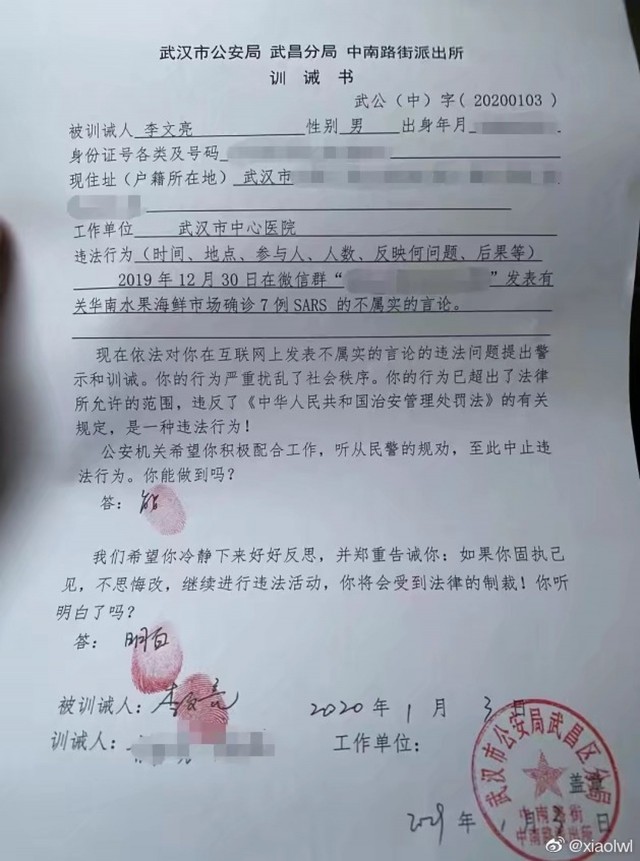 武汉市公安局 武昌分局 中南路街派出所
训 诫 书
武公（中）字（ 20200103 ）
被训诫人 李文亮 性别 男 出身年月
身份证号各类及号码
现住址（户籍所在地） 武汉市
工作单位 武汉市中心医院
违法行为（时间、地点、参与人、人数、反映何问题、后果等）
2019 年 12 月 30 日在微信群“ ”发表有
关华南水果海鲜市场确诊 7 例 SARS 的不属实的言论。
现在依法对你在互联网上发表不属实的言论的违法问题提出警
示和训诫。你的行为严重扰乱了社会秩序。你的行为已超出了法律
所允许的范围，违反了《中华人民共和国治安管理处罚法》的有关
规定，是一种违法行为！
公安机关希望你积极配合工作，听从民警的规劝，至此中止违
法行为。你能做到吗？
答： 能
我们希望你冷静下来好好反思，并郑重告诫你：如果你固执己
见，不思悔改，继续进行违法活动，你将会受到法律的制裁！你听
明白了吗？
答： 明白
被训诫人：李文亮 2020 年 1 月 3 日
训诫人： 工作单位：
武汉市公安局武昌区分局
盖章
中南路街
中南路派出所
年 月 日
@xiaolwl